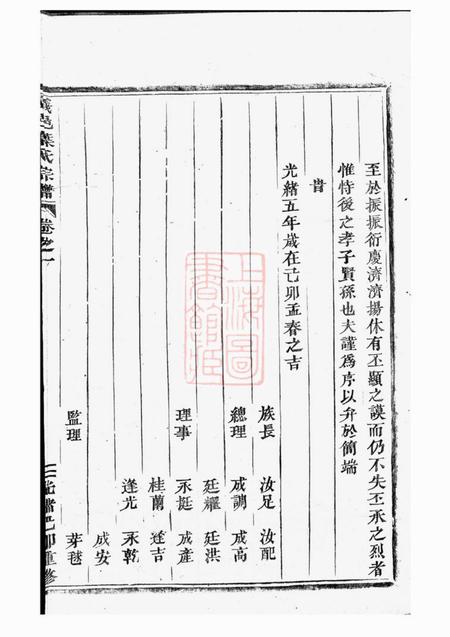 至於振振衍慶濟濟揚休有丕顯之謨而仍不失丕承之烈者
惟恃後之孝子賢孫也夫謹為序以弁於簡端
旹
光緒五年歲在己卯孟春之吉
族長 汝足 汝配
總理 成調 成高
廷耀 廷洪
理事 永挺 成產
桂蘭 達吉
逢光 永乾
成安
監理 芽毬
義邑葉氏宗譜 卷之一
光緒己卯重修
上海圖書館藏